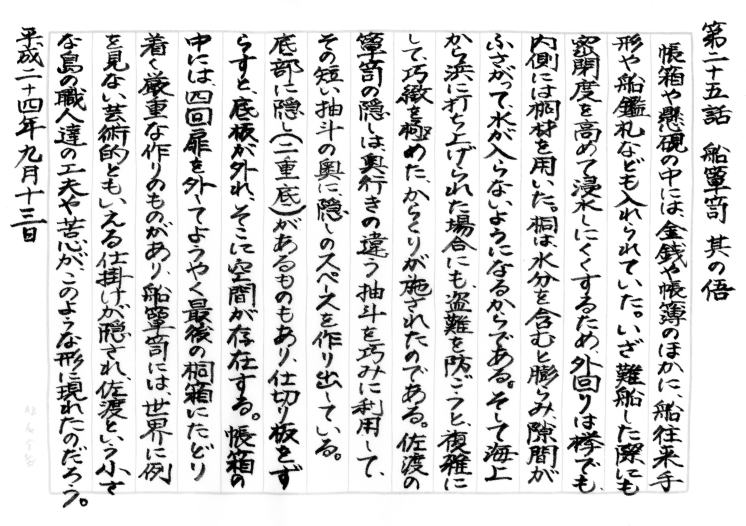 第二十五話 船簞笥 其の伍
帳箱や懸硯の中には、金銭や帳簿のほかに、船往来手
形や船鑑札なども入れられていた。いざ難船した際にも
密閉度を高めて浸水しにくくするため、外回りは欅でも、
内側には桐材を用いた。桐は水分を含むと膨らみ、隙間が
ふさがって、水が入らないようになるからである。そして海上
から浜に打ち上げられた場合にも、盗難を防ごうと、複雑に
して巧緻を極めた、からくりが施されたのである。佐渡の
簞笥の隠しは、奥行きの違う抽斗を巧みに利用して、
その短い抽斗の奥に、隠しのスペースを作り出している。
底部に隠し(二重底)があるものもあり、仕切り板をず
らすと、底板が外れ、そこに空間が存在する。帳箱の
中には、四回扉を外してようやく最後の桐箱にたどり
着く厳重な作りのものがあり、船簞笥には、世界に例
を見ない芸術的ともいえる仕掛けが隠され、佐渡という小さ
な島の職人達の工夫や苦心が、このような形に現れたのだろう。
平成二十四年 九月十三日